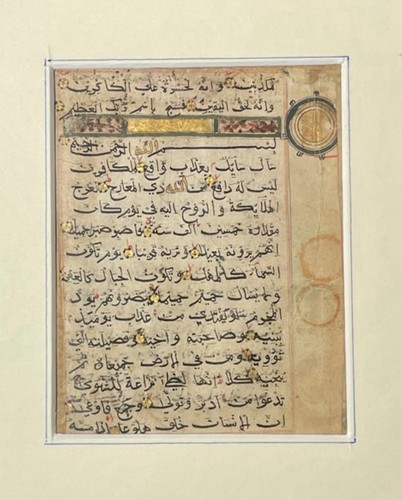 مكذبين وانه لحسرة على الكافرين
وانه لحق اليقين فسبح باسم ربك العظيم
بسم الله الرحمن الرحيم
سال سايل بعذاب واقع للكافرين
ليس له دافع من الله ذي المعارج تعرج
الملايكة والروح اليه في يوم كان
مقداره خمسين الف سنة فاصبر صبرا جميلا
انهم يرونه بعيدا ونريه قريبا يوم تكون
السماء كالمهل وتكون الجبال كالعهن
ولا يسال حميم حميما يبصرونهم يود
المجرم لو يفتدي من عذاب يوميذ
ببنيه وصاحبته واخيه وفصيلته التي
تؤويه ومن في الارض جميعا ثم
ينجيه كلا انها لظى نزاعة للشوى
تدعوا من ادبر وتولى وجمع فاوعى
ان الانسان خلق هلوعا اذا مسه